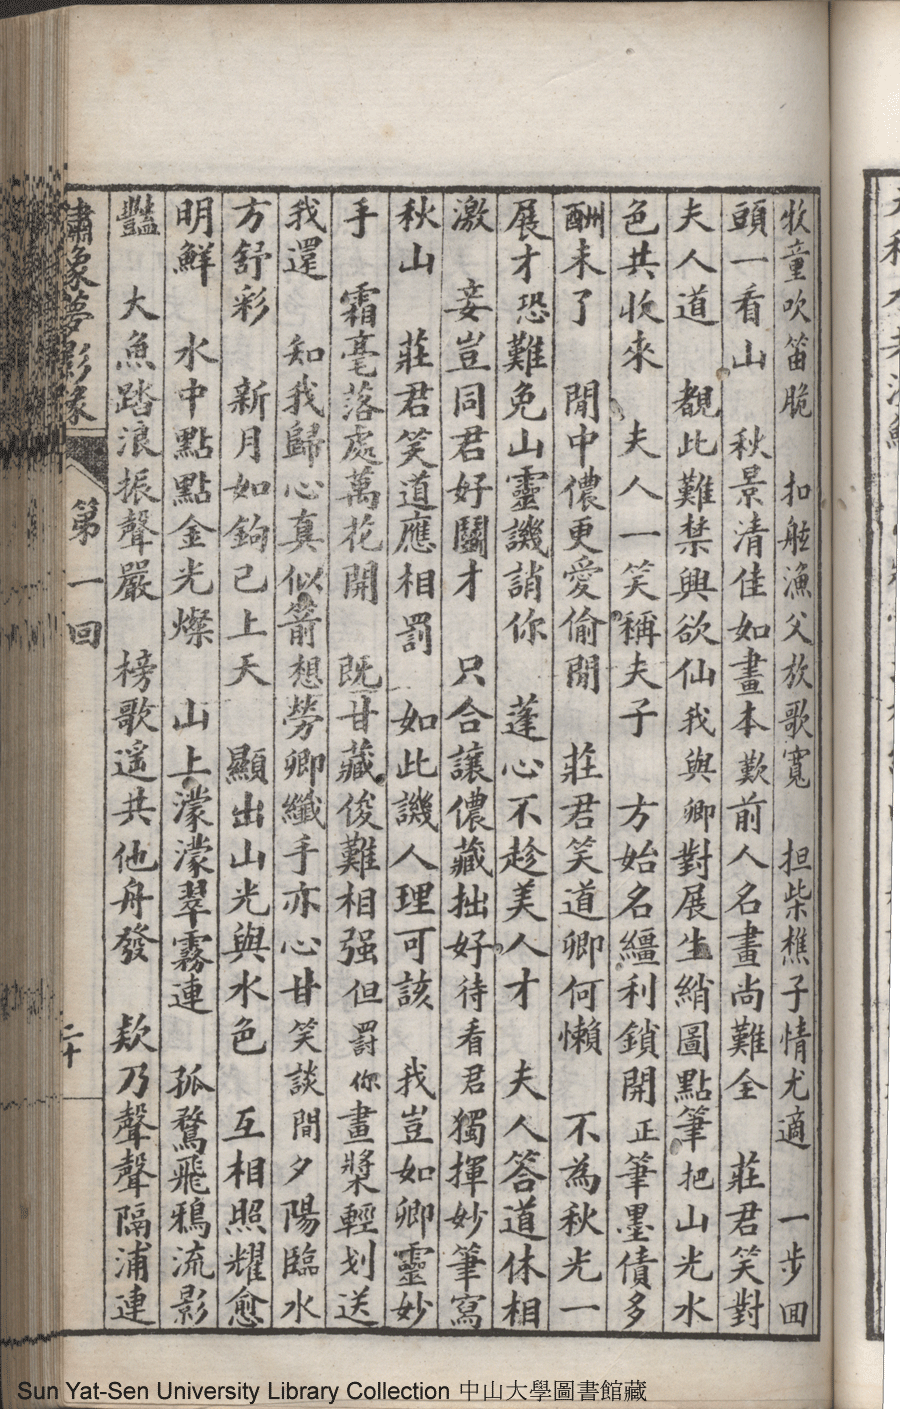 牧童吹笛脆　扣舷漁父放歌寬　担柴樵子情尤適　一步回
頭一看山　秋景清佳如畫本歎前人名畫尚難全　莊君笑對
夫人道　覩此難禁興欲仙我與卿對展生綃圖點筆把山光水
色共收來　夫人一笑稱夫子　方始名繮利鎖開正筆墨債多
酬未了　閒中儂更愛偷閒　莊君笑道卿何懶　不為秋光一
展才恐難免山靈譏誚你　蓬心不趁美人才　夫人答道休相
激　妾豈同君好鬭才　只合讓儂藏拙好待看君獨揮妙筆寫
秋山　莊君笑道應相罰　如此譏人理可該　我豈如卿靈妙
手　霜毫落處萬花開　既甘藏俊難相强但罰你畫槳輕划送
我還　知我歸心真似箭想勞卿纖手亦心甘笑談間夕陽臨水
方舒彩　新月如鉤已上天　顯出山光與水色　互相照耀愈
明鮮　水中點點金光燦　山上濛濛翠霧連　孤鶩飛鴉流影
豔　大魚踏浪振聲嚴　榜歌遥共他舟發　欵乃聲聲隔浦連
夢影緣
第一回
二十
Sun Yat-Sen University Library Collection 中山大學圖書館藏